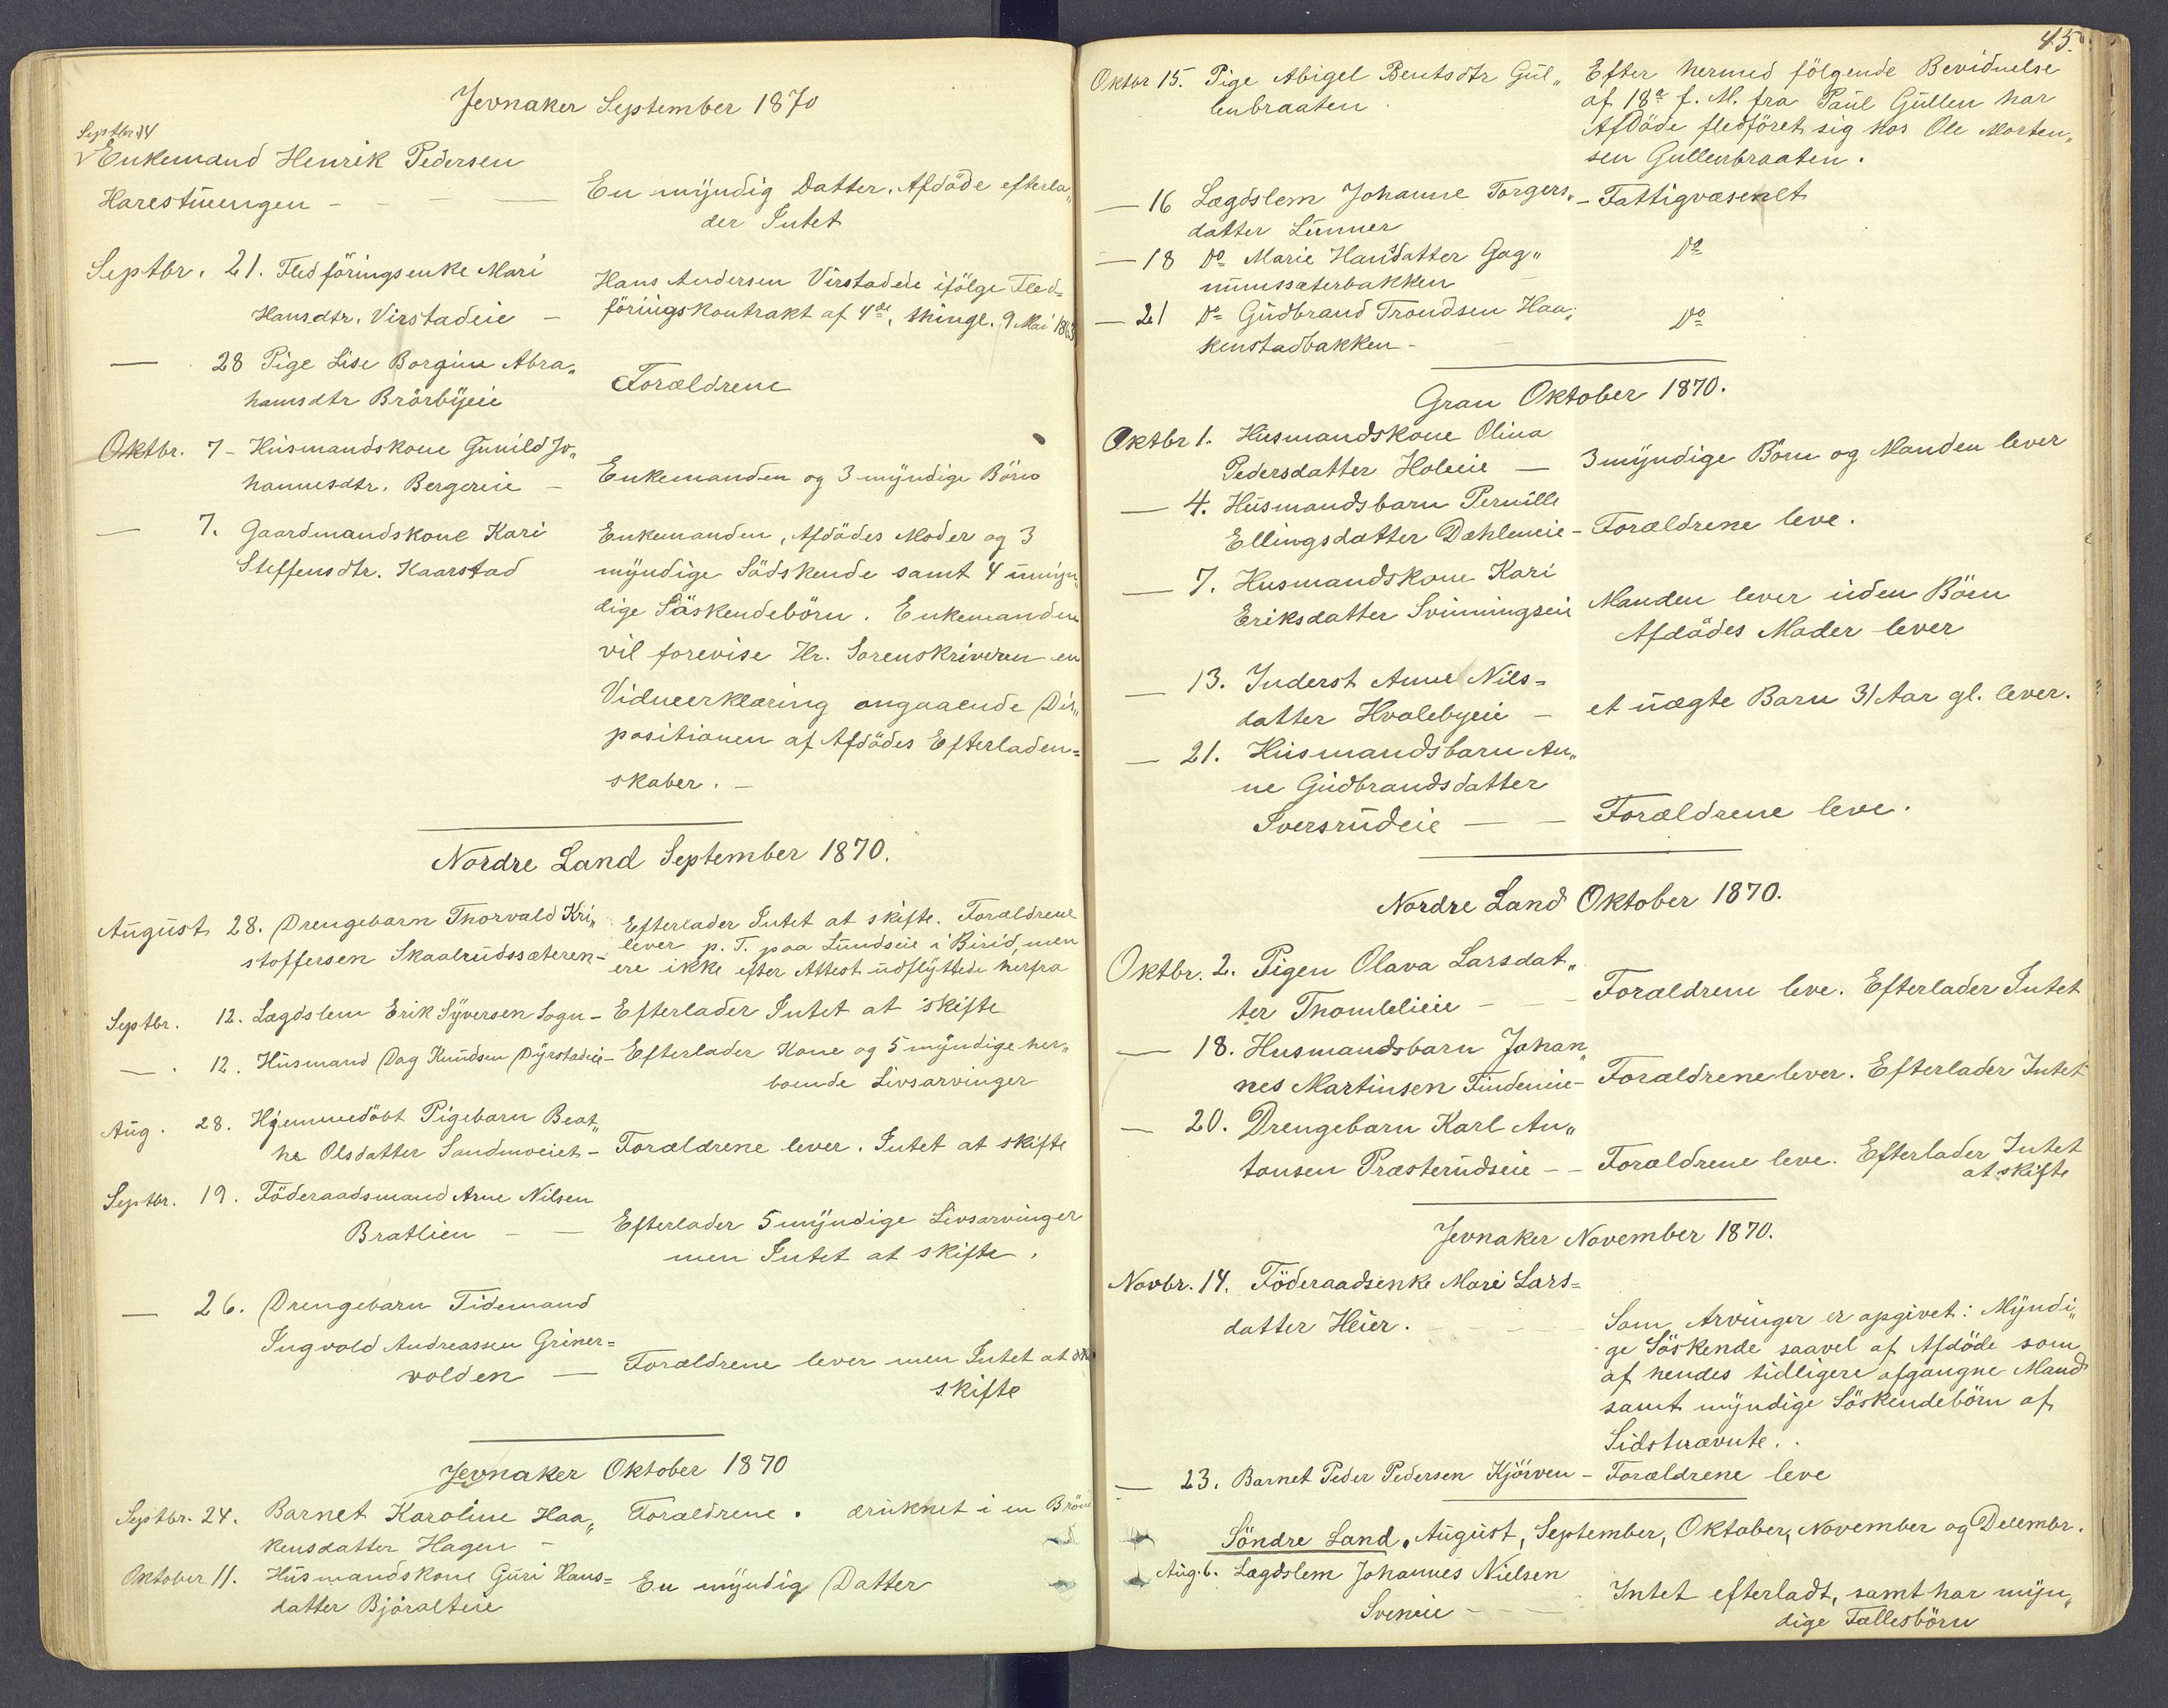 Jevnaker September 1870
Septbr 14
Enkemand Henrik Pedersen
Harestuengen - - - — En myndig Datter. Afdöde efterla„
der Intet
Septbr. 21. Fledföringsenke Mari
Hansdtr. Virstadeie — Hans Andersen Virstadeie ifölge Fled=
föringskontrakt af 4de, thingl. 9 Mai 1863
— 28 Pige Lise Borgine Abra„
hamsdtr Brörbyeie Forældrene
Oktbr. 7 - Husmandskone Gunild Jo„
hannesdtr. Bergereie — Enkemanden og 3 myndige Börn
— 7. Gaardmandskone Kari Enkemanden, Afdödes Moder og 3
Steffensdtr. Kaarstad myndige Södskende samt 4 umyn„
dige Söskendebörn. Enkemanden
vil forevise Hr. Sorenskriveren en
Vidneerklæring angaaende Dis„
positionen af Afdödes Efterladen=
skaber. —
Nordre Land September 1870.
August 28. Drengebarn Thorvald Kri„ Efterlader Intet at skifte. Forældrene
stoffersen Skaalrudssæteren - lever p. T. paa Lundseie i Birid, men
ere ikke efter Attest udflyttede herfra
Septbr. 12. Lægdslem Erik Syversen Sogn - Efterlader Intet at skifte
— . 12. Husmand Dag Knudsen Dyrstadeie - Efterlader Kone og 5 myndige her„
boende Livsarvinger
Aug. 28. Hjemmedöbt Pigebarn Beat„
he Olsdatter Sandmoeiet - Forældrene lever. Intet at skifte
Septbr. 19. Föderaadsmand Arne Nilsen
Bratlien - — Efterlader 5 myndige Livsarvinger
men Intet at skifte.
— 26. Drengebarn Tidemand
Ingvold Andreassen Griner=
volden — Forældrene lever men Intet at
skifte
Jevnaker Oktober 1870
Septbr. 24. Barnet Karoline Haa„ Forældrene. druknet i en Brönd
kensdatter Hagen -
Oktober 11. Husmandskone Guri Hans= En myndig Datter
datter Björalteie
45.
Oktbr 15. Pige Abigel Bentsdtr Gul„ Efter hermed fölgende Bevidnelse
lenbraaten. af 18de f. M. fra Paul Gullen har
Afdöde fledföret sig hos Ole Morten„
sen Gullenbraaten.
— 16 Lægdslem Johanne Torgers„ - Fattigvæsenet
datter Lunner
— 18 Do Marie Hansdatter Gag„ Do
numsæterbakken
— 21 Do Gudbrand Trondsen Haa„ Do
kenstadbakken -
Gran Oktober 1870.
Oktbr 1. Husmandskone Olina
Pedersdatter Holeie — 3 myndige Börn og Manden lever
— 4. Husmandsbarn Pernille
Ellingsdatter Dæhleneie - Forældrene leve.
— 7. Husmandskone Kari
Eriksdatter Svinningseie Manden lever uden Börn
Afdödes Moder lever
— 13. Inderst Anne Nils=
datter Hvalebyeie — et uægte Barn 31 Aar gl. lever.
— 21. Husmandsbarn An„
ne Gudbrandsdatter
Iversrudeie — — Forældrene leve.
Nordre Land Oktober 1870.
Oktbr. 2. Pigen Olava Larsdat„
ter Thomlelieie - - Forældrene leve. Efterlader Intet
— 18. Husmandsbarn Johan„
nes Martinsen Findeneie - Forældrene lever. Efterlader Intet
— 20. Drengebarn Karl An„
tonsen Præsterudseie - - Forældrene leve. Efterlader Intet
at skifte
Jevnaker November 1870.
Novbr. 14. Föderaadsenke Mari Lars=
datter Heier. - - - Som Arvinger er opgivet: Myndi„
ge Söskende saavel af Afdöde som
af hendes tidligere afgangne Mand
samt myndige Söskendebörn af
Sidstnævnte.
— 23. Barnet Peder Pedersen Kjörven - Forældrene leve
Söndre Land, August, September, Oktober, November og Decembr.
Aug. 6. Lægdslem Johannes Nielsen
Sveneie - — Intet efterladt, samt har myn„
dige Fællesbörn